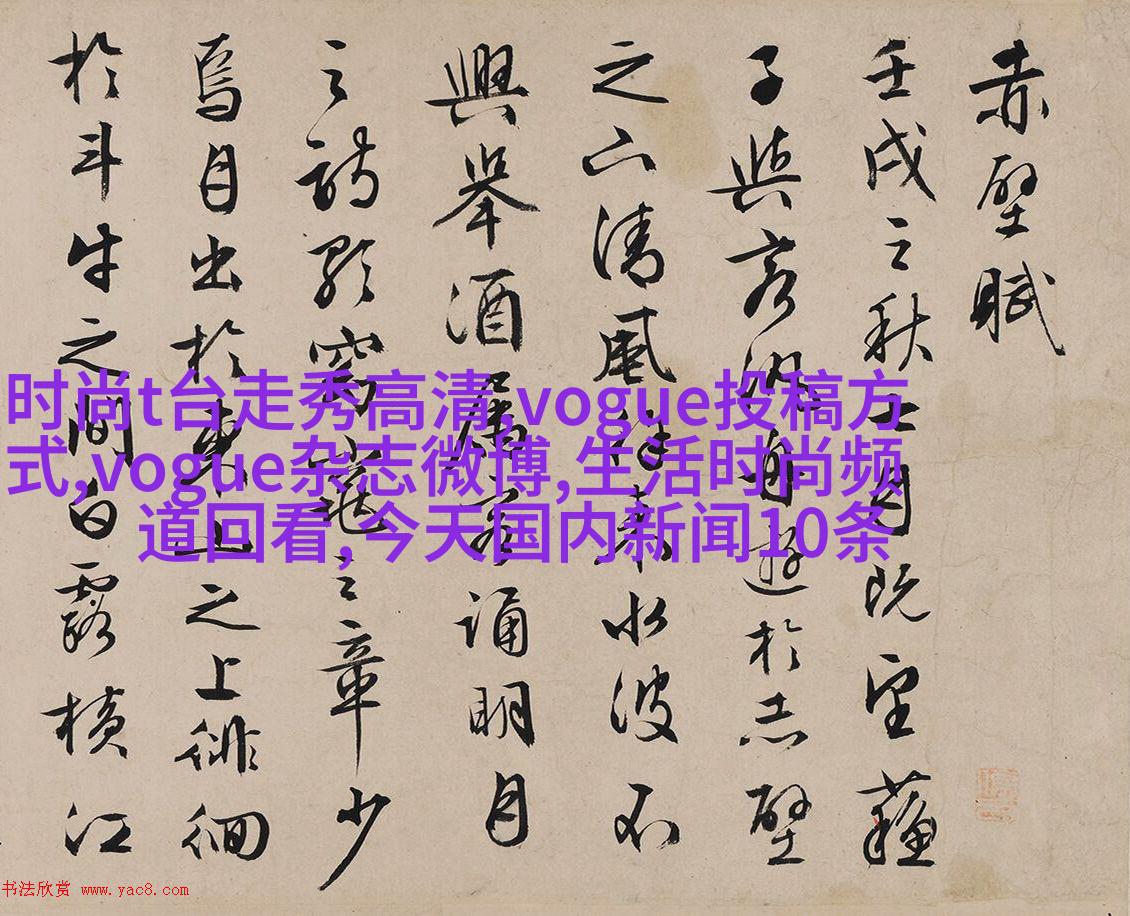 赤壁賦
壬戌之秋七月既望蘇
子與客汎舟遊於赤壁
之下清風徐來水波不
興舉酒屬客誦明月
之詩歌窈窕之章少
焉月出於東山之上徘徊
於斗牛之間白露橫江
时尚t台走秀高清,vogue投稿方
式,vogue杂志微博,生活时尚频
道回看,今天国内新闻10条
书法欣赏 www.yac8.com